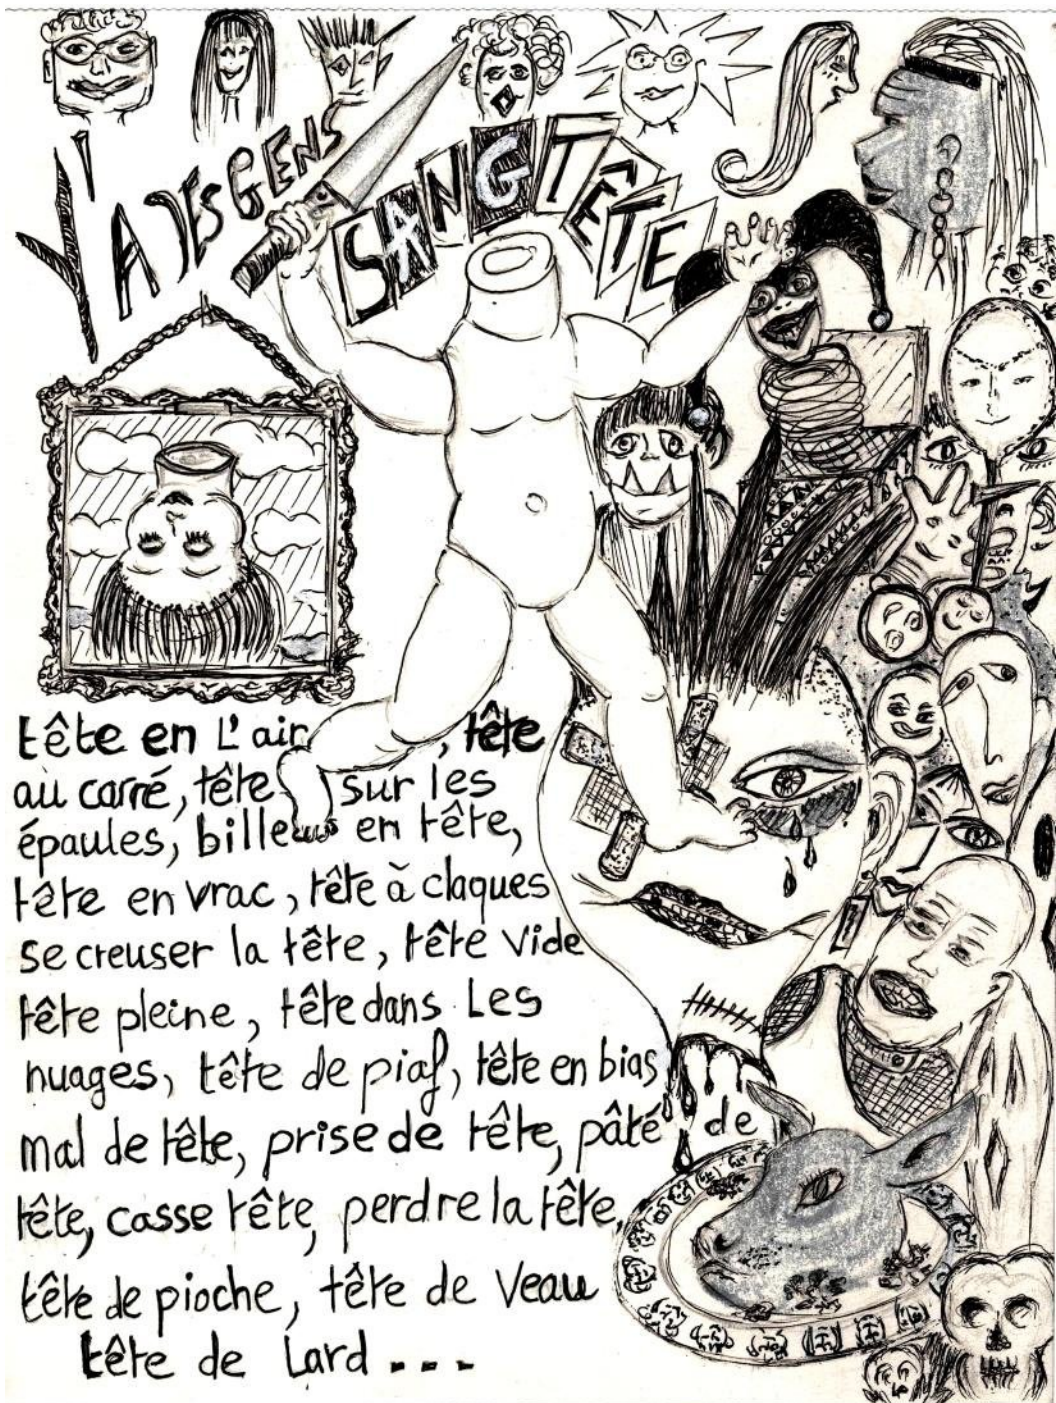 Y'A DES GENS SANG TÊTE
tête en L'air, tête
au carré, tête sur les
épaules, billes en tête,
tête en vrac, tête à claques
se creuser la tête, tête vide
tête pleine, tête dans Les
nuages, tête de piaf, tête en bias
mal de tête, prise de tête, pâté de
tête, casse tête, perdre la tête,
tête de pioche, tête de Veau
tête de Lard ...